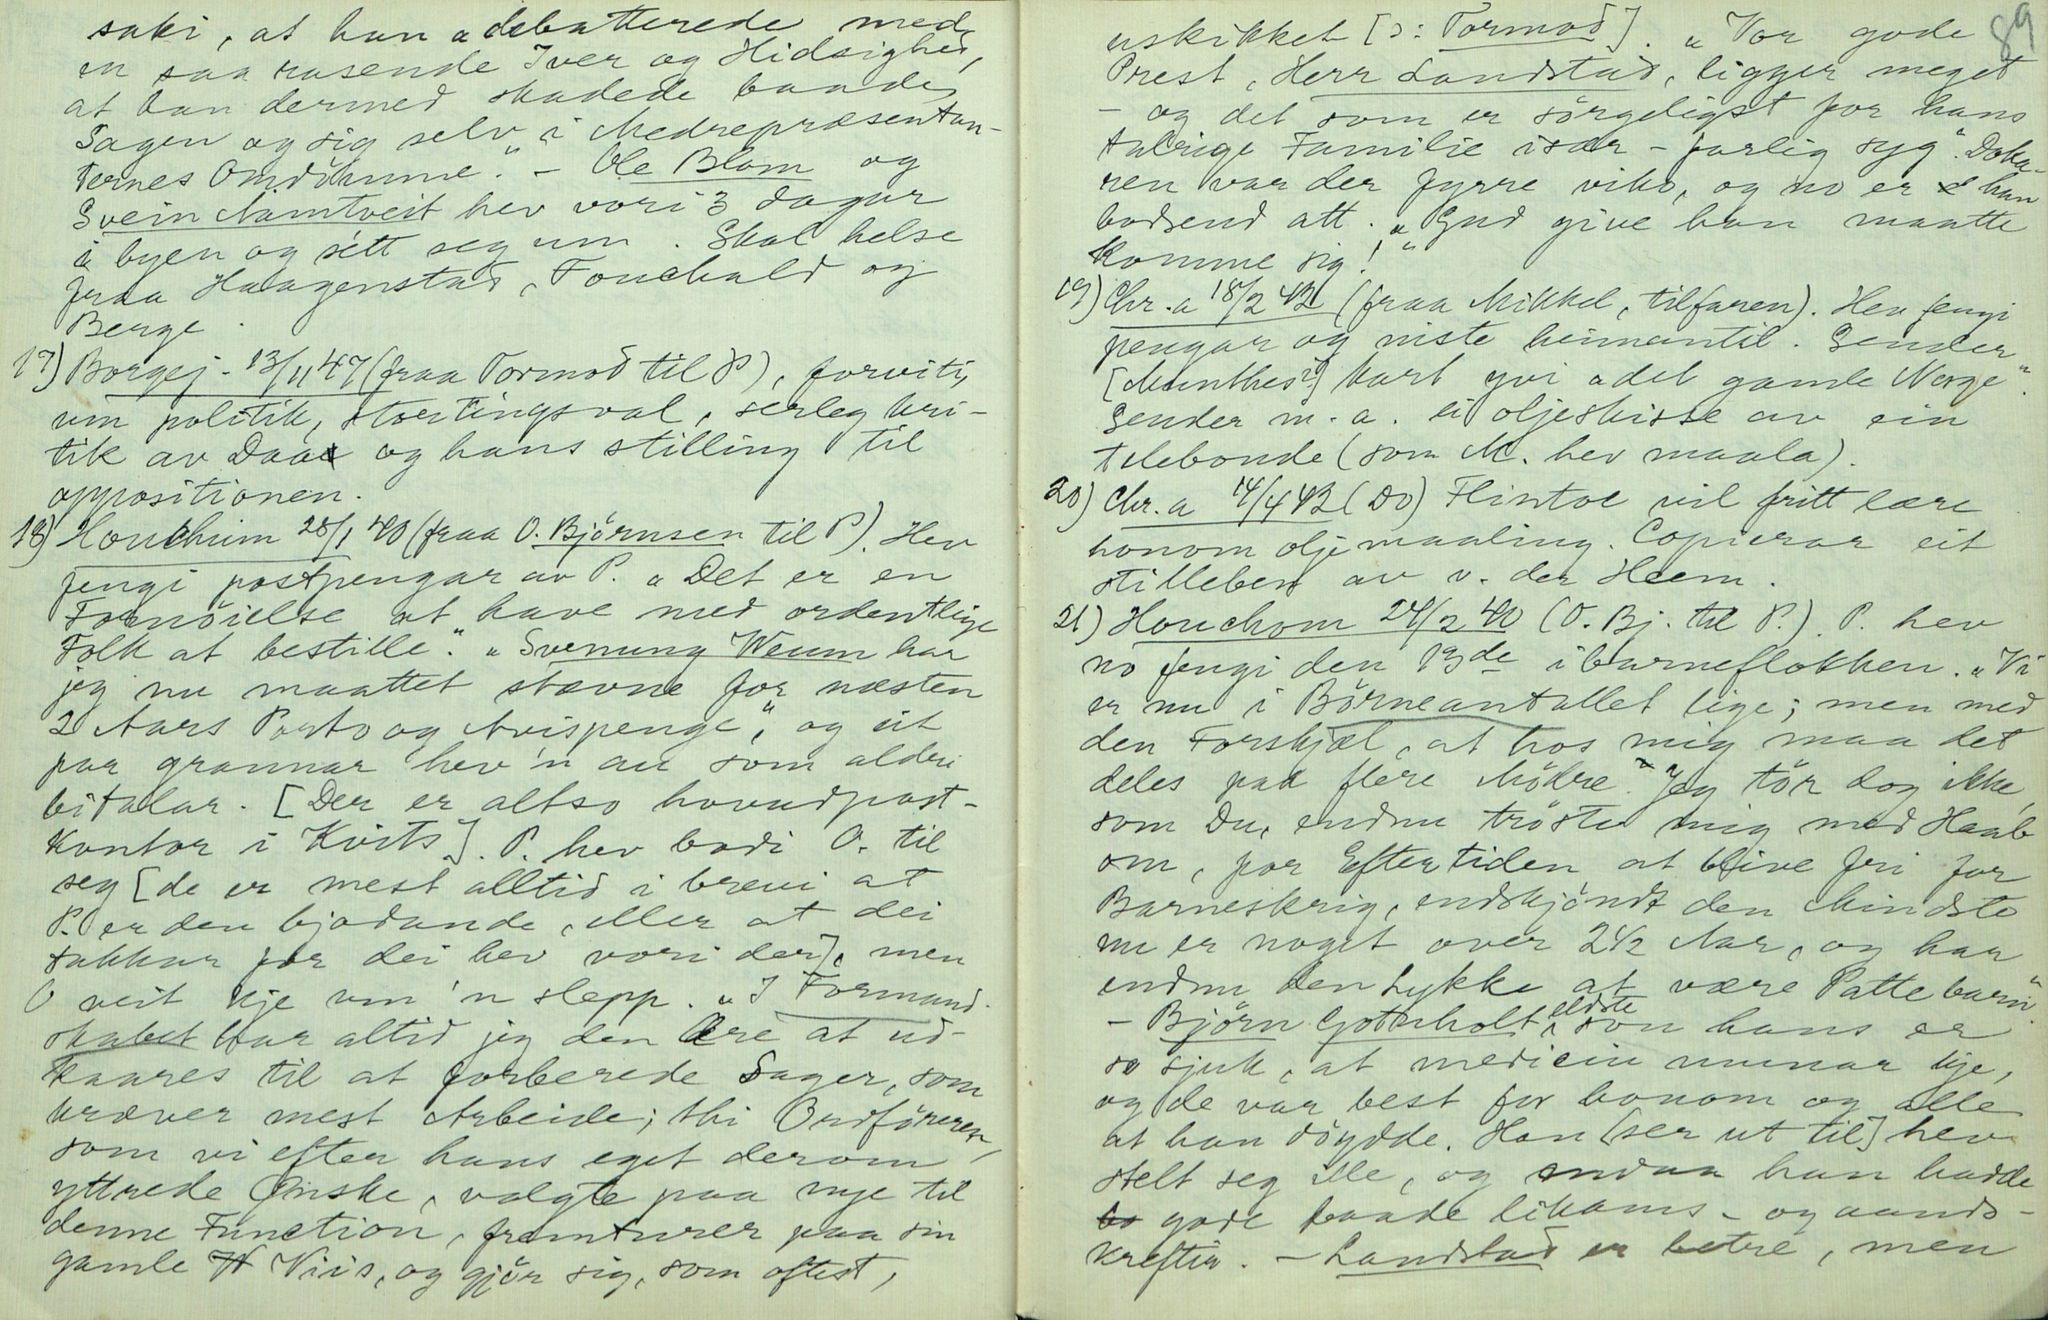 saki, at han „debatterede med
en saa rasende Iver og Hidsighed,
at han dermed skadede baade
Sagen og sig selv i Medrepræsentan-
ternes Omdömme." – Ole Blom og
Svein Namtveit hev vori 3 dagar
i byen og sétt seg um. Skal helse
fraa Haagenstad, Fouchald og
Berge.
17) Borgej. 13/11 47 (fraa Tormod til P), forviti,
um politik, stortingsval, serleg kri-
tik av Daa og hans stilling til
oppositionen.
18) Houchum 28/1 40 (fraa O. Björnsen til P). Hev
fengi postpengar av P. „Det er en
Fornöielse at have med ordentlige
Folk at bestille". „Svenung Weum har
jeg nu maattet stævne for næsten
2 Aars Porto og Avispenge", og eit
par grannar hev'n au som aldri
bitalar. [Der er altso hovudpost-
kontor i Kvits]. P. hev bodi O. til
seg [de er mest alltid i brevi at
P. er den bjodande, eller at dei
takkar for dei hev vori der], men
O veit kje um'n slepp. „I Formand-
skabet har altid jeg den Ære at ud-
kaares til at forberede Sager, som
kræver mest Arbeide; thi Ordföreren,
som vi efter hans eget derom
yttrede Ønske, valgte paa nye til
denne Function, fremturer paa sin
gamle Viis, og gjör sig, som oftest,
89
uskikket [ɔ: Tormod]. „Vor gode
Prest, Herr Landstad, ligger meget
– og det som er sörgeligst for hans
talrige Familie især – farlig syg". Dokte-
ren var der fyrre viko, og no er han
bodsend att. „Gud give han maatte
komme sig!"
19) Chr.a 18/2 42 (fraa Mikkel, tilfaren). Hev fengi
pengar og niste heimantil. Sender
[Munthes?] kart yvi „det gamle Norge".
Sender m. a. ei oljeskisse av ein
telebonde (som M. hev maala).
20) Chr.a 14/4 42 (Do) Flintoe vil fritt lære
honom oljemaaling. Copierar eit
stilleben av v. der Heem.
21) Houchom 24/2 40 (O. Bj. til P.). P. hev
no fengi den 13de i barneflokken. „Vi
er nu i Börneantallet lige; men med
den Forskjæl, at hos mig maa det
deles paa flere Mödre. Jeg tör dog ikke,
som Du, endnu tröste mig med Haab
om, for Eftertiden at blive fri for
Barneskrig, endskjöndt den Mindste
nu er noget over 2½ Aar, og har
endnu den Lykke at være Pattebarn".
– Björn Gotuholt, eldste son hans er
so sjuk, at medicin munar kje,
og de var best for honom og alle
at han döydde. Han [ser ut til] hev
stelt seg ille, og endaa han hadde
gode baade likams- og aands-
kreftir. – Landstad er betre, men